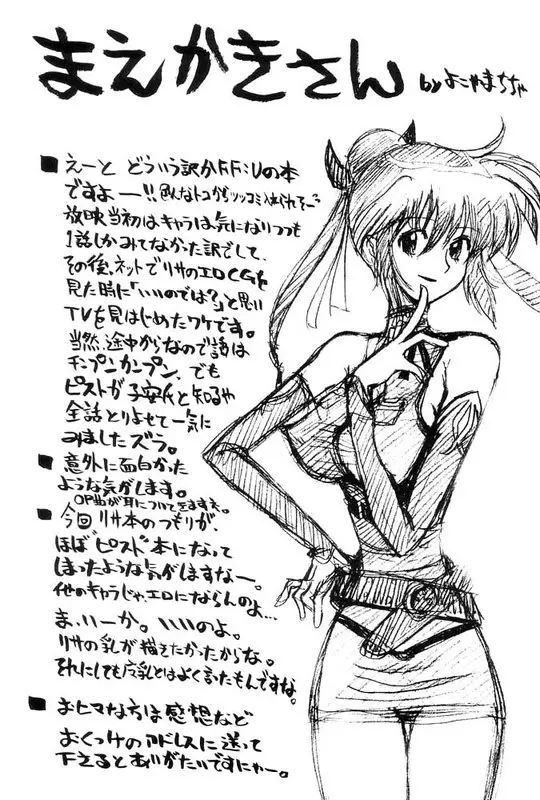 まえかきさん
by よこやまちちゃ
■ えーと どういう訳かFF:Uの本
ですよー!!
放映当初はキャラは気になりつつも
1話しかみてなかった訳でして、
その後、ネットでリサのエロCGを
見た時に「いいのでは?」と思い
TVを見はじめたワケです。
当然、途中からなので話は
チンプンカンプン。でも
ピストが子安氏と知るや
全話とりよせて一気に
みましたズラ。
■ 意外に面白かった
ような気がします。
OP曲が耳について
■ 今回リサ本のつもりが、
ほぼ"ピスト"本になって
しまったような気がしますなー。
他のキャラじゃ、エロにならんのよ…
ま、いーか。いいのよ。
リサの乳が描きたかったからな。
それにしても
とはよく言ったもんですな。
■ おヒマな方は感想など
おくつけのアドレスに送って
下さるとありがたいですにゃー。